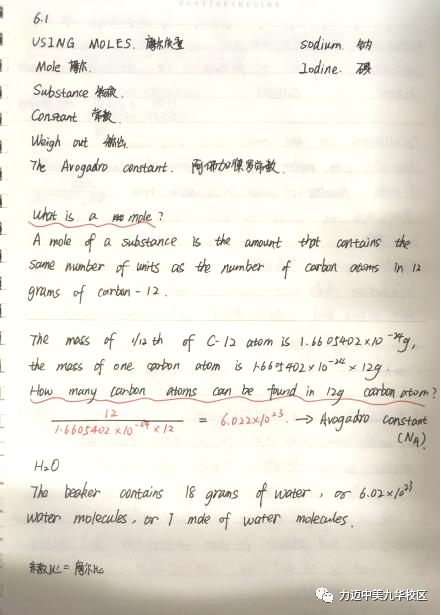 6.1
USING MOLES. 摩尔质量 sodium. 钠
Mole 摩尔. Iodine. 碘
Substance 物质.
Constant 常数.
Weigh out 称出.
The Avogadro constant. 阿伏加德罗常数.
What is a mole?
A mole of a substance is the amount that contains the
same number of units as the number of carbon atoms in 12
grams of carbon-12.
The mass of 1/12 th of C-12 atom is 1.6605402×10⁻²⁴g,
the mass of one carbon atom is 1.6605402×10⁻²⁴ × 12g.
How many carbon atoms can be found in 12g carbon atom?
12 / 1.6605402×10⁻²⁴ × 12 = 6.022×10²³. → Avogadro constant
(N_A)
H₂O
The beaker contains 18 grams of water, or 6.02×10²³
water molecules, or 1 mole of water molecules.
系数比 = 摩尔比
力迈中美九华校区